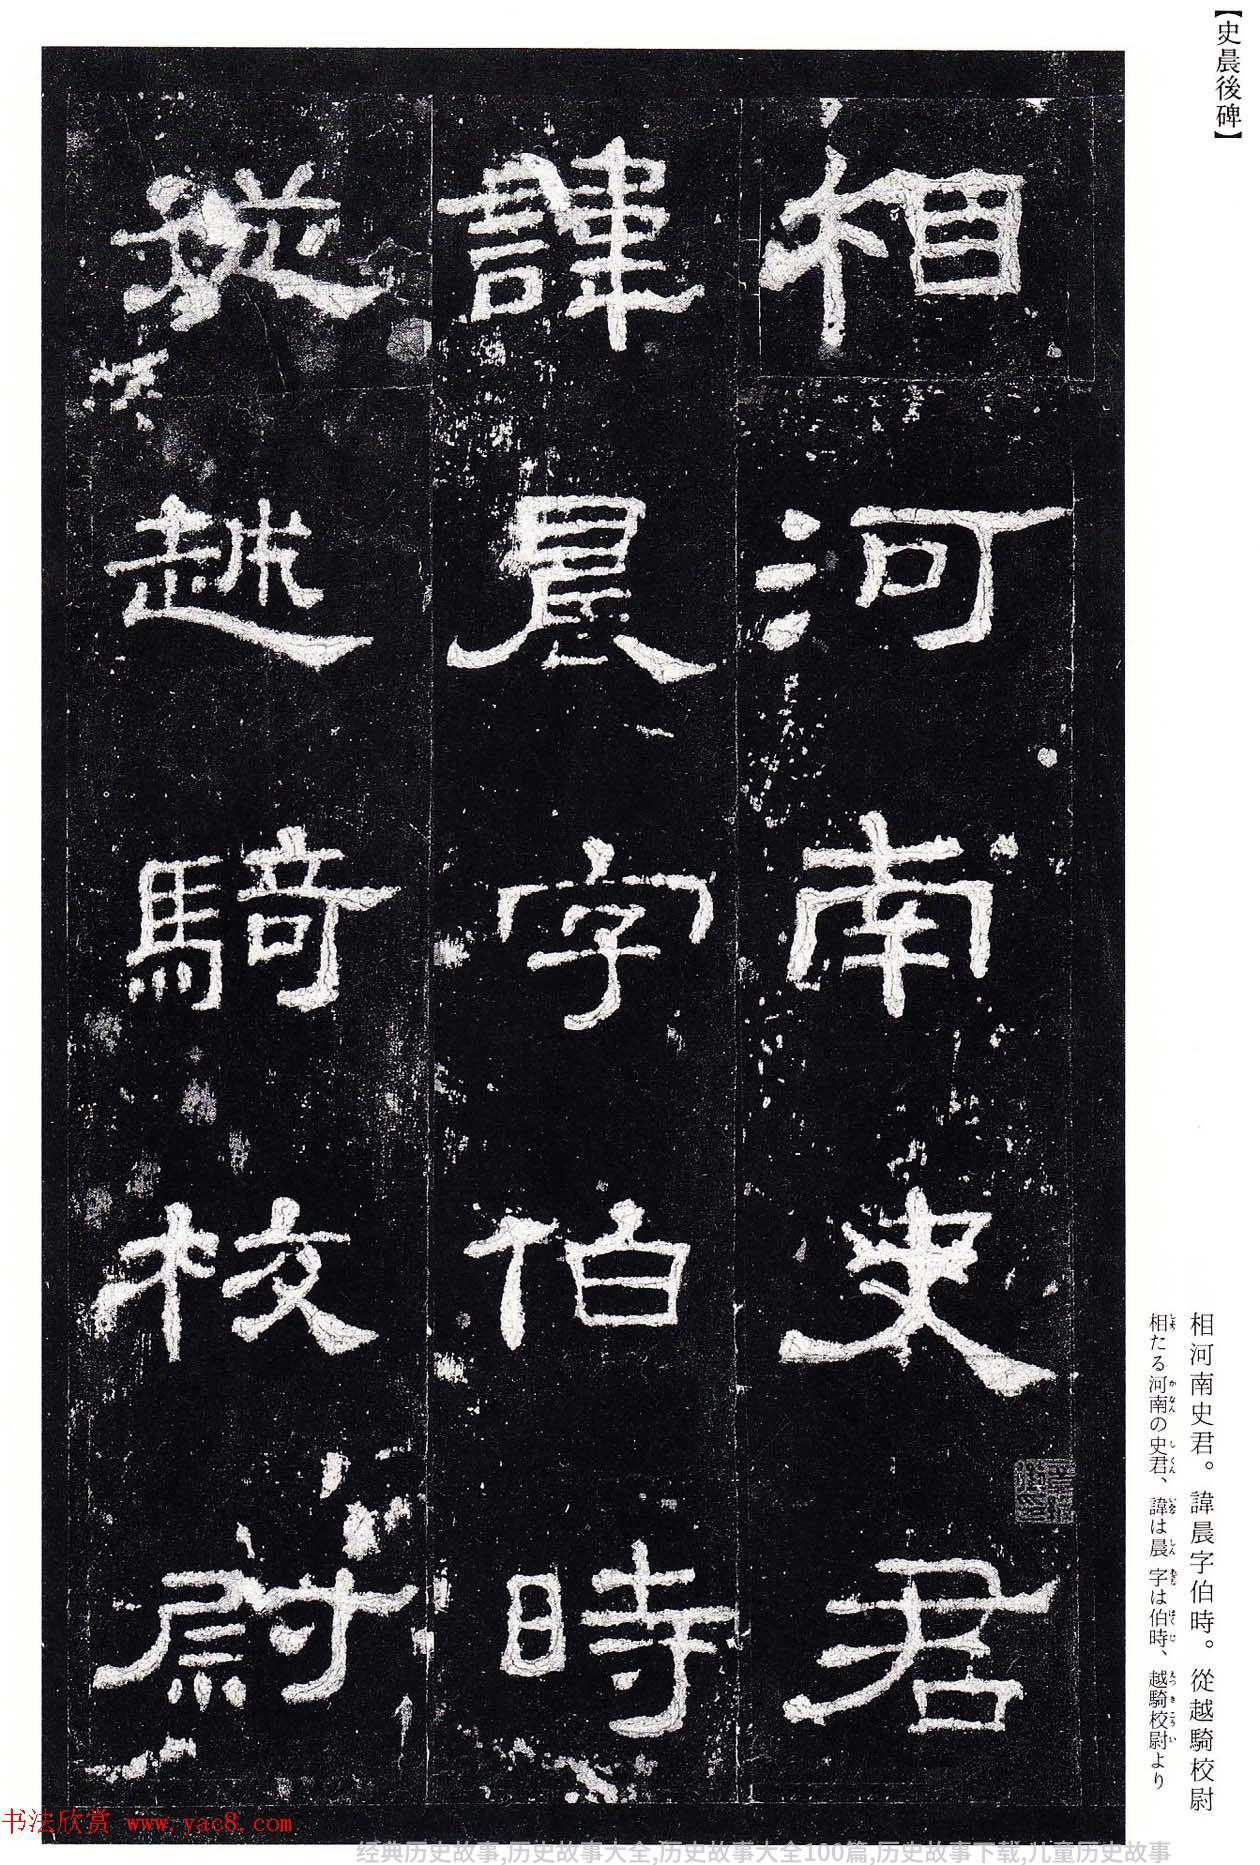 【史晨後碑】
相河南史君
諱晨字伯時
從越騎校尉
相河南史君。諱晨字伯時。從越騎校尉
相たる河南の史君、諱は晨 字は伯時、越騎校尉より
书法欣赏 www.yac8.com
经典历史故事,历史故事大全,历史故事大全100篇,历史故事下载,儿童历史故事